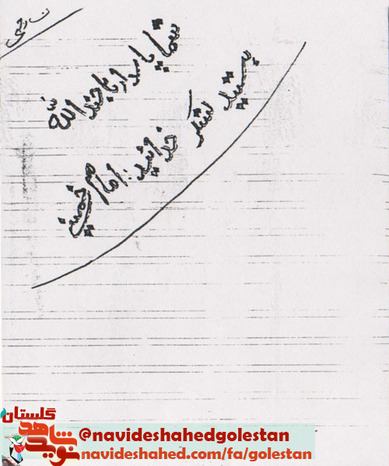 شما پاسدار یا جند الله
هستید لشکر خدائید: امام خمینی
گلستان
نوید شاهد
@navideshahedgolestan
navideshahed.com/fa/golestan